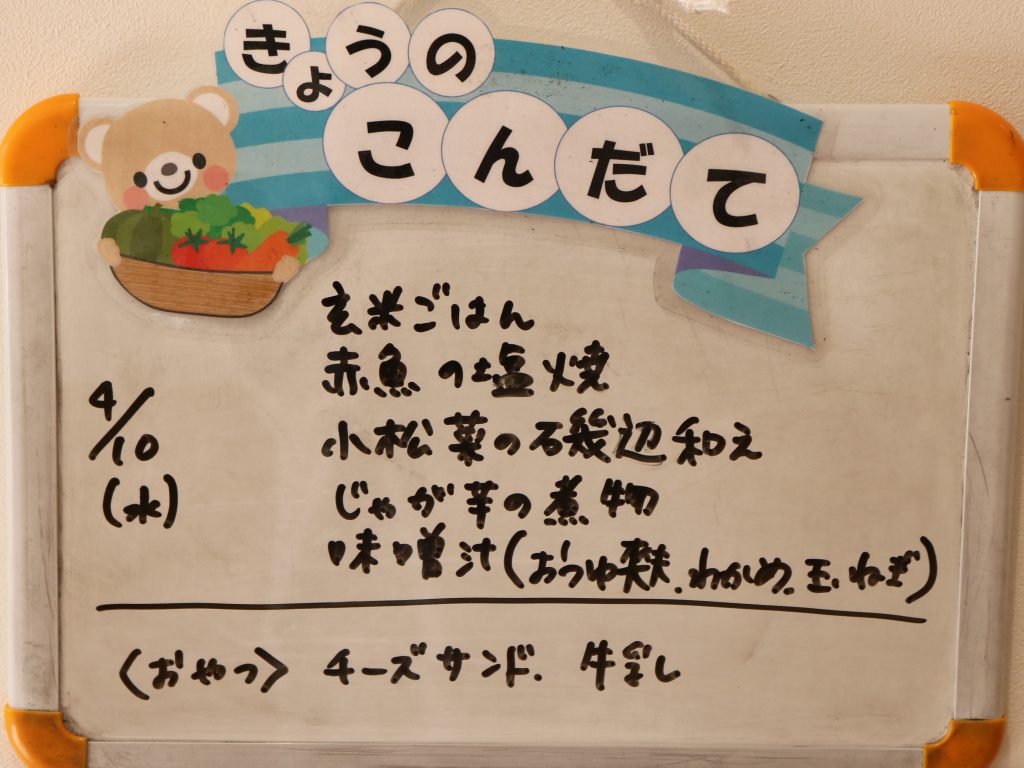 きょうの
こんだて
玄米ごはん
赤魚の塩焼
4/10
(水)
小松菜の石幾辺和え
じゃが芋の煮物
味噌汁(おつゆ麩、わかめ、玉ねぎ)
<おやつ> チーズサンド、牛乳